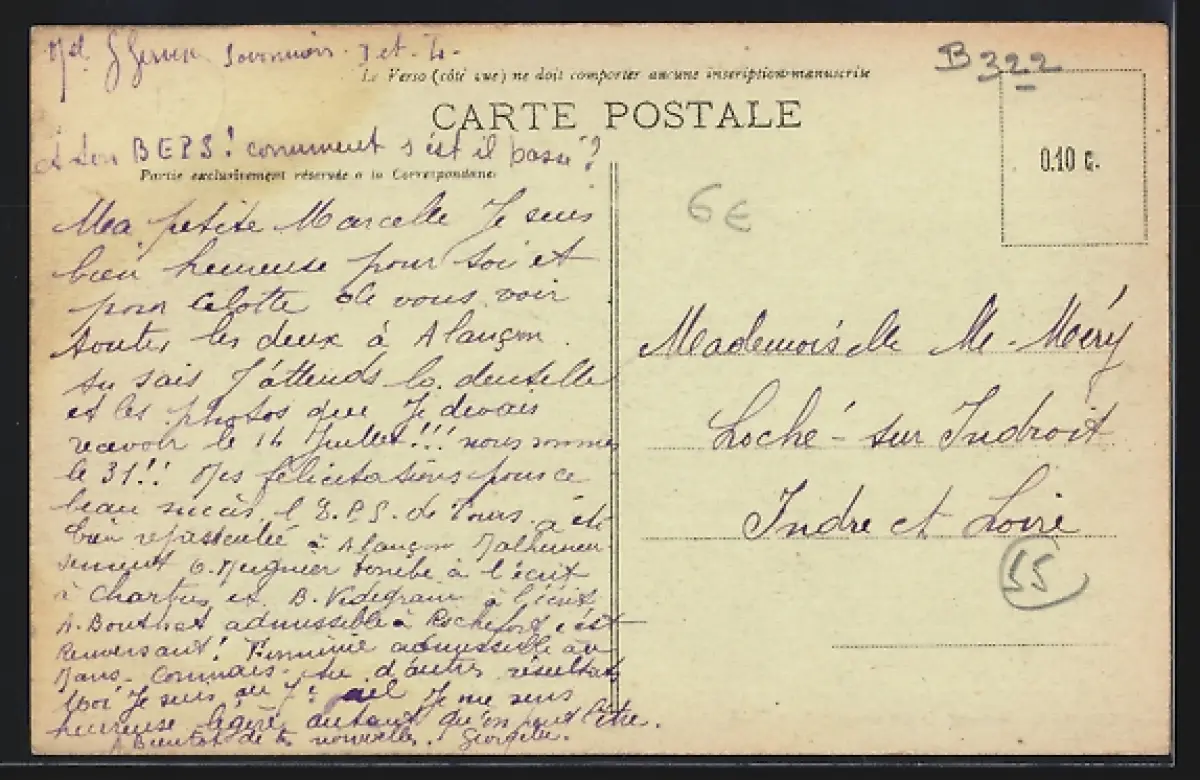 Mel G Savonnières I et L
B322
Le Verso (côté vue) ne doit comporter aucune inscription manuscrite
CARTE POSTALE
et ton BEPS! comment s'est il passé?
Partie exclusivement réservée a la Correspondance
0.10 c.
6€
Ma petite Marcelle Je suis
bien heureuse pour toi et
pour de vous voir
toutes les deux à Alançon.
tu sais J'attends la dentelle
et les photos que Je devais
recevoir le 14 Juillet!!! nous sommes
le 31!! Mes félicitations pour ce
beau succès. l'E.P.S. de Tours a été
bien représentée à Alançon Malheureu
sement G. Meignier tombe à l'écrit
à Chartres et B. à l'écrit
A. admissible à Rochefort c'est
renversant! Firminie admissible au
Mans. Connais-tu d'autres résultats
Moi Je suis au 7e ciel Je me sens
heureuse légère autant qu'on peut l'être.
A Bientôt de tes nouvelles.
Mademoiselle M. Méry
Loché-sur Indroit
Indre et Loire
55